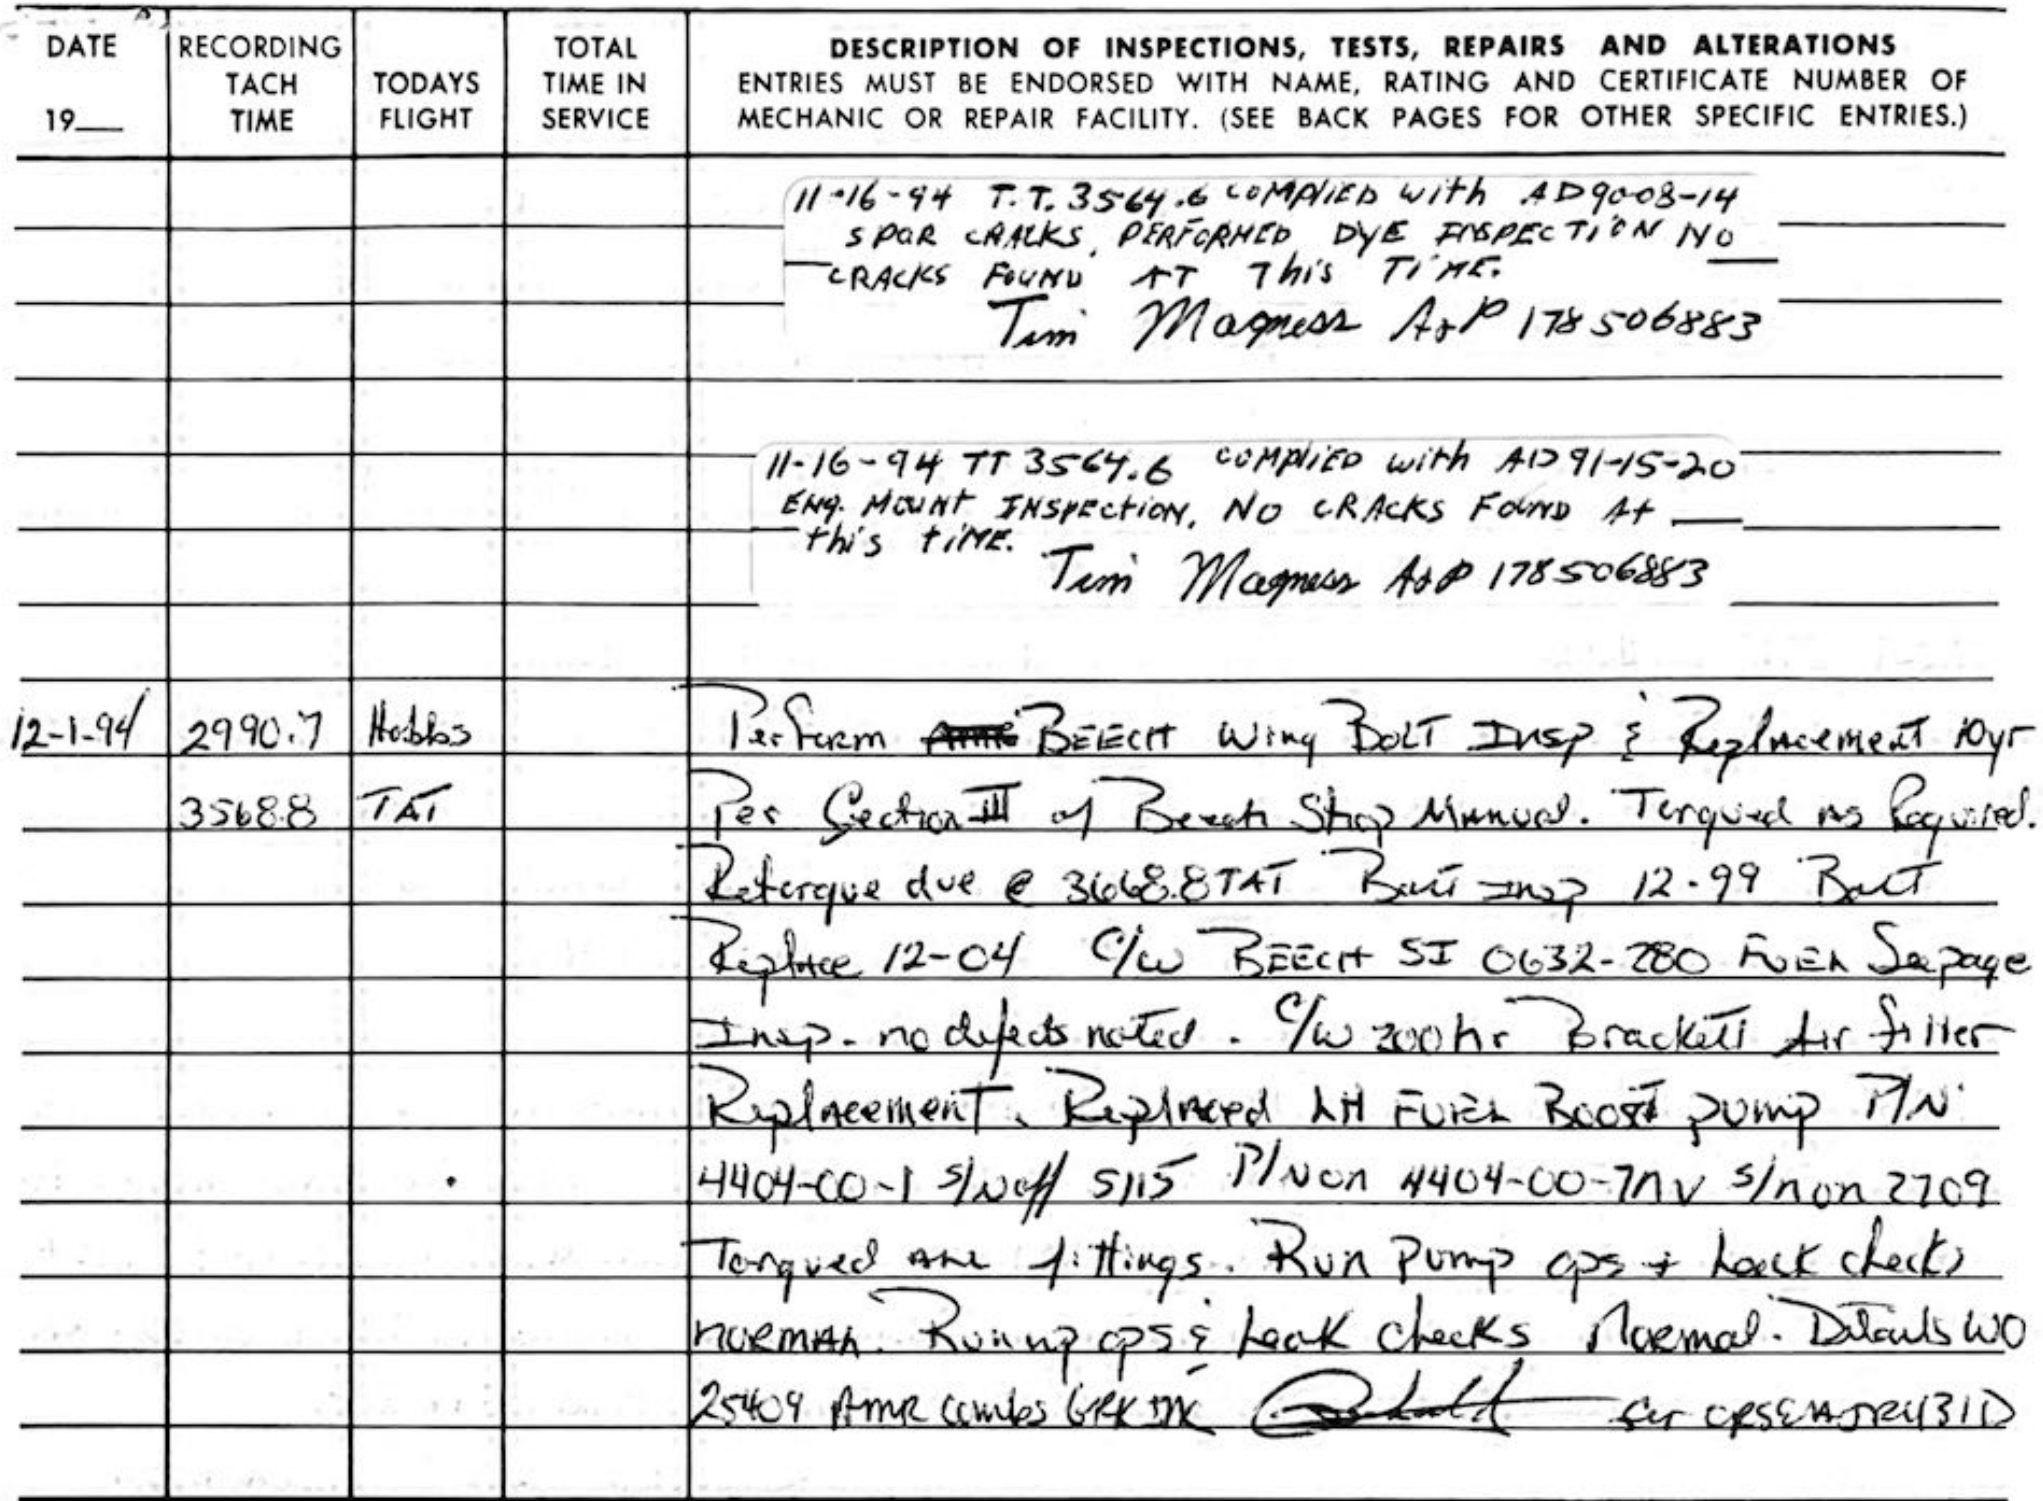 DATE RECORDING TOTAL DESCRIPTION OF INSPECTIONS, TESTS, REPAIRS AND ALTERATIONS
TACH TODAYS TIME IN ENTRIES MUST BE ENDORSED WITH NAME, RATING AND CERTIFICATE NUMBER OF
19__ TIME FLIGHT SERVICE MECHANIC OR REPAIR FACILITY. (SEE BACK PAGES FOR OTHER SPECIFIC ENTRIES.)
11-16-94 T.T. 3564.6 COMPLIED with AD90-08-14
SPAR CRACKS, PERFORMED DYE INSPECTION NO
CRACKS FOUND AT This TIME.
Tim Magness A&P 178506883
11-16-94 TT 3564.6 COMPLIED with AD 91-15-20
ENG. MOUNT INSPECTION, NO CRACKS FOUND At
this tiME.
Tim Magness A&P 178506883
12-1-94 2990.7 Hobbs Perform BEECH Wing BOLT Insp & Replacement 10yr
3568.8 TAT Per Section III of Beech Shop Manual. Torqued as Required.
Retorque due @ 3668.8 TAT Bolt Insp 12-99 Bolt
Replace 12-04 C/W BEECH SI 0632-280 FUEL Seepage
Insp. no defects noted. C/W 200 hr Brackett Air filter
Replacement. Replaced LH FUEL BOOST pump P/N
4404-00-1 S/N off 5115 P/N on 4404-00-7 S/N on 2709
Torqued ALL fittings. Run Pump ops + Leak checks
NORMAL. Runup ops & Leak checks Normal. Details WO
25409 AMR Combs for CRS